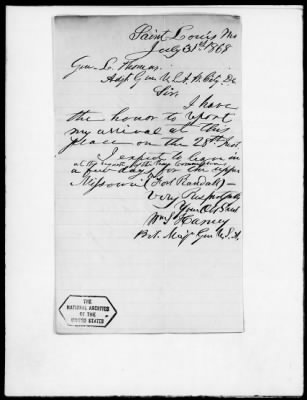 Saint Louis Mo
July 31st 1868
Gen. L. Thomas.
Adjt Gen. U.S.A.
Sir,
I have
the honor to report
my arrival at this
place on the 28th Inst.
I expect to leave in
at the request of the
a few days for the upper
Missouri (Fort Randall) —
Very Respectfully
Your Obt Servt
Wm S Harney
Bvt. Maj. Gen. U.S.A.
THE
NATIONAL ARCHIVES
OF THE
UNITED STATES